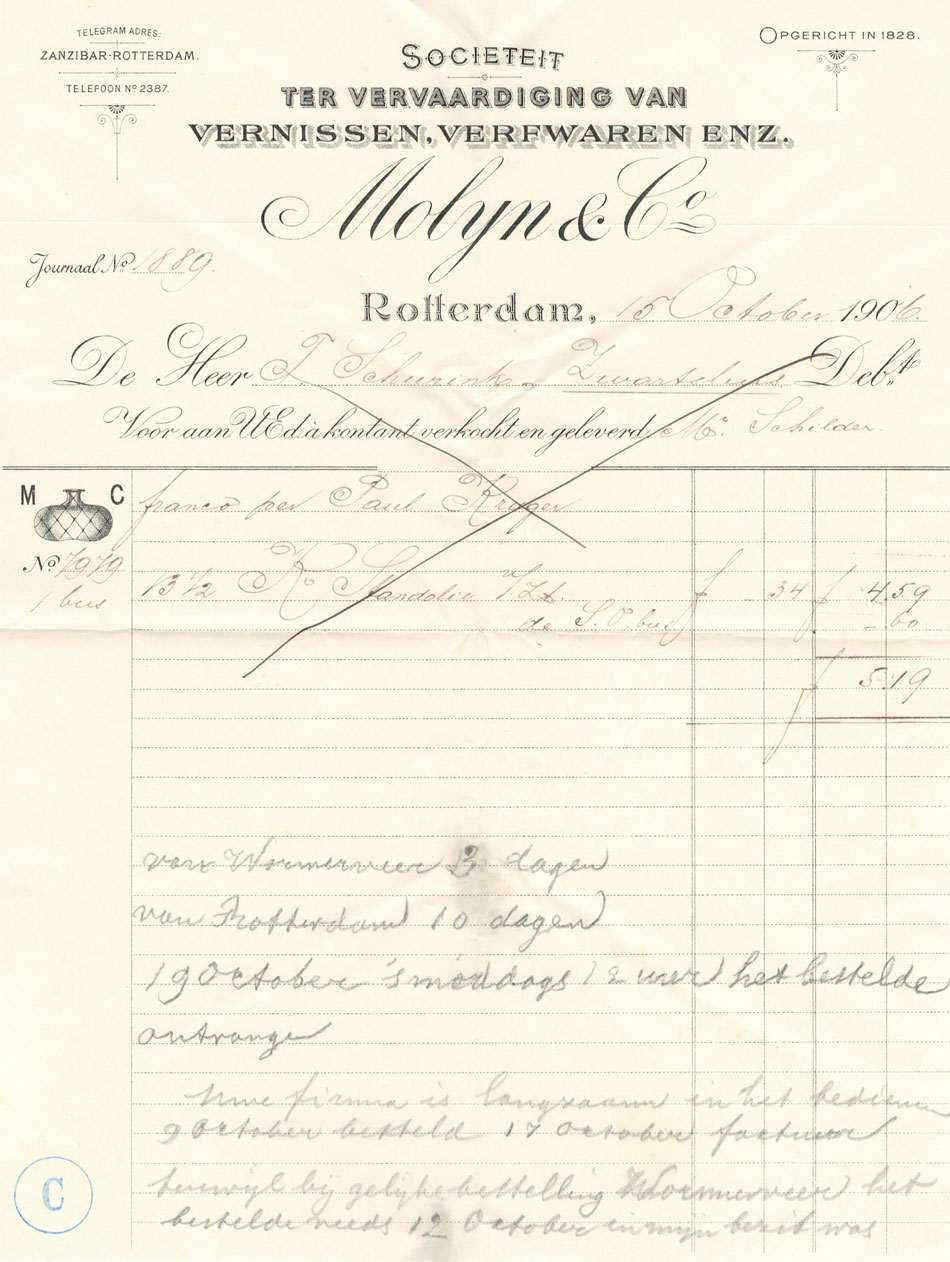 TELEGRAM ADRES:
ZANZIBAR-ROTTERDAM.
TELEFOON No 2387.
OPGERICHT IN 1828.
SOCIETEIT
TER VERVAARDIGING VAN
VERNISSEN, VERFWAREN ENZ.
Molyn & Co
Journaal No 1889.
Rotterdam, 15 October 1906.
De Heer T. Schurink, Zwartsluis Debt
Voor aan UEd à kontant verkocht en geleverd Mr. Schilder.
M C
franco per Paul Kruger
No 7979
1 bus
13 1/2 Ko Standolie f 34 f 4.59
de S.O. bus - 60
f 5.19
van Wormerveer 3 dagen
van Rotterdam 10 dagen
19 October 's middags 12 uur het bestelde
ontvange
Uwe firma is langzaam in het bedienen
9 October besteld 17 October factuur
terwijl bij gelijke bestelling Wormerveer het
bestelde reeds 12 October in mijn bezit was
C